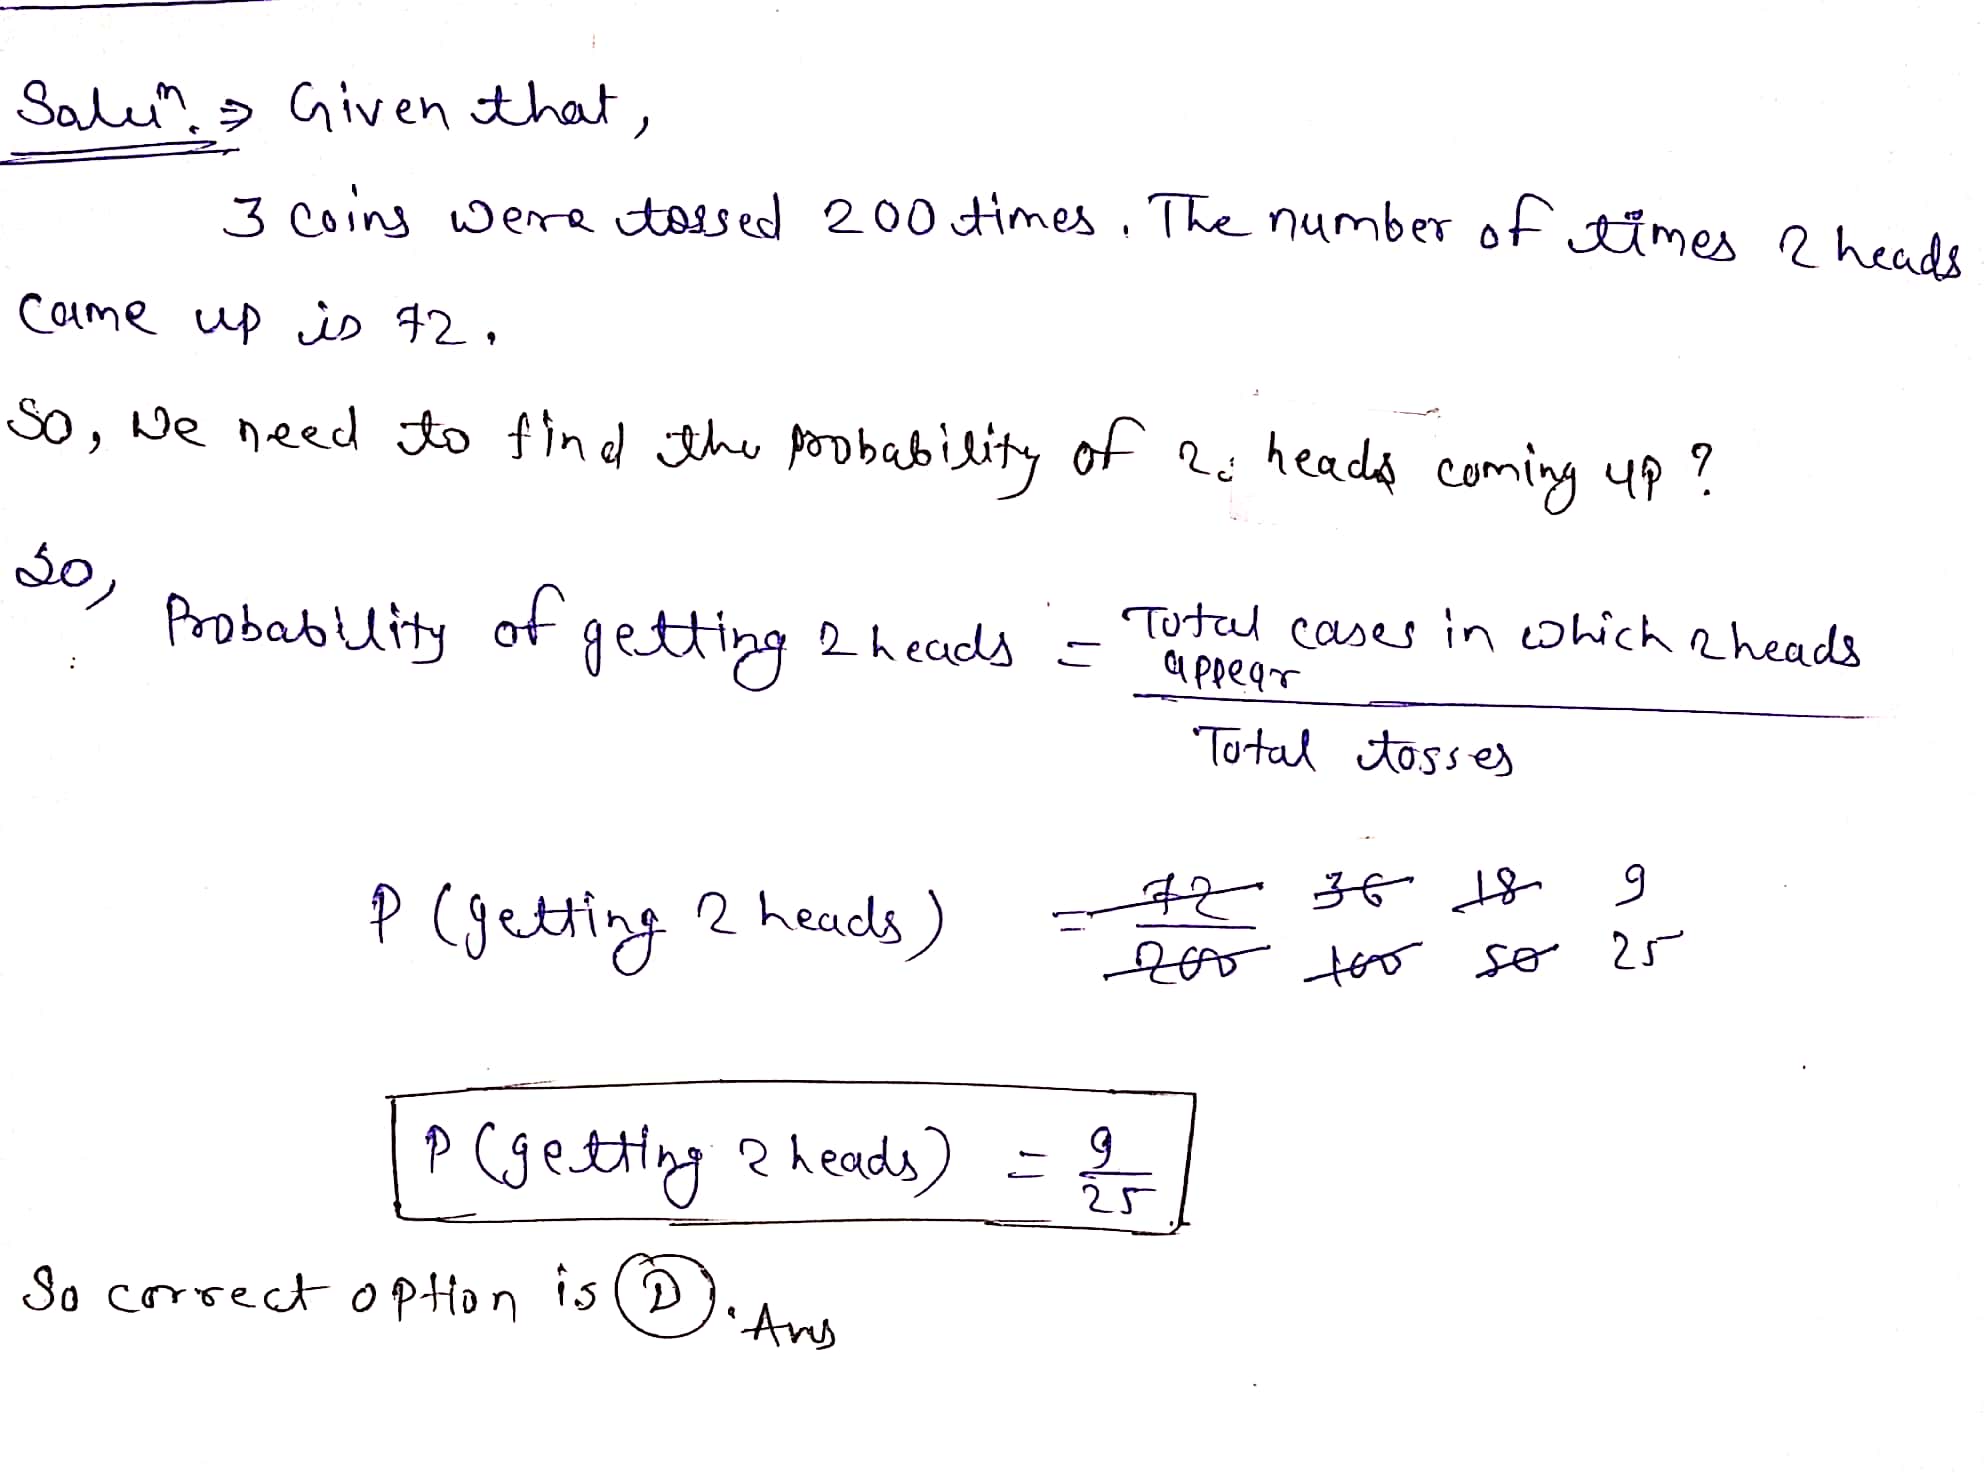 Solun. ⇒ Given that,
3 coins were tossed 200 times. The number of times 2 heads
came up is 72.
So, we need to find the probability of 2 heads coming up ?
So,
Probability of getting 2 heads = Total cases in which 2 heads
appear
Total tosses
P (getting 2 heads) = 72 36 18 9
200 100 50 25
P (getting 2 heads) = 9
25
So correct option is D. Ans